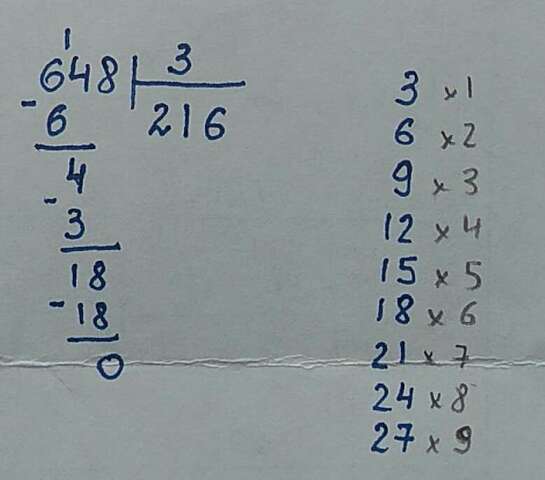 1
648 3
-6 216
4
-3
18
-18
0
3 x1
6 x2
9 x 3
12 x 4
15 x 5
18 x 6
21 x 7
24 x 8
27 x 9